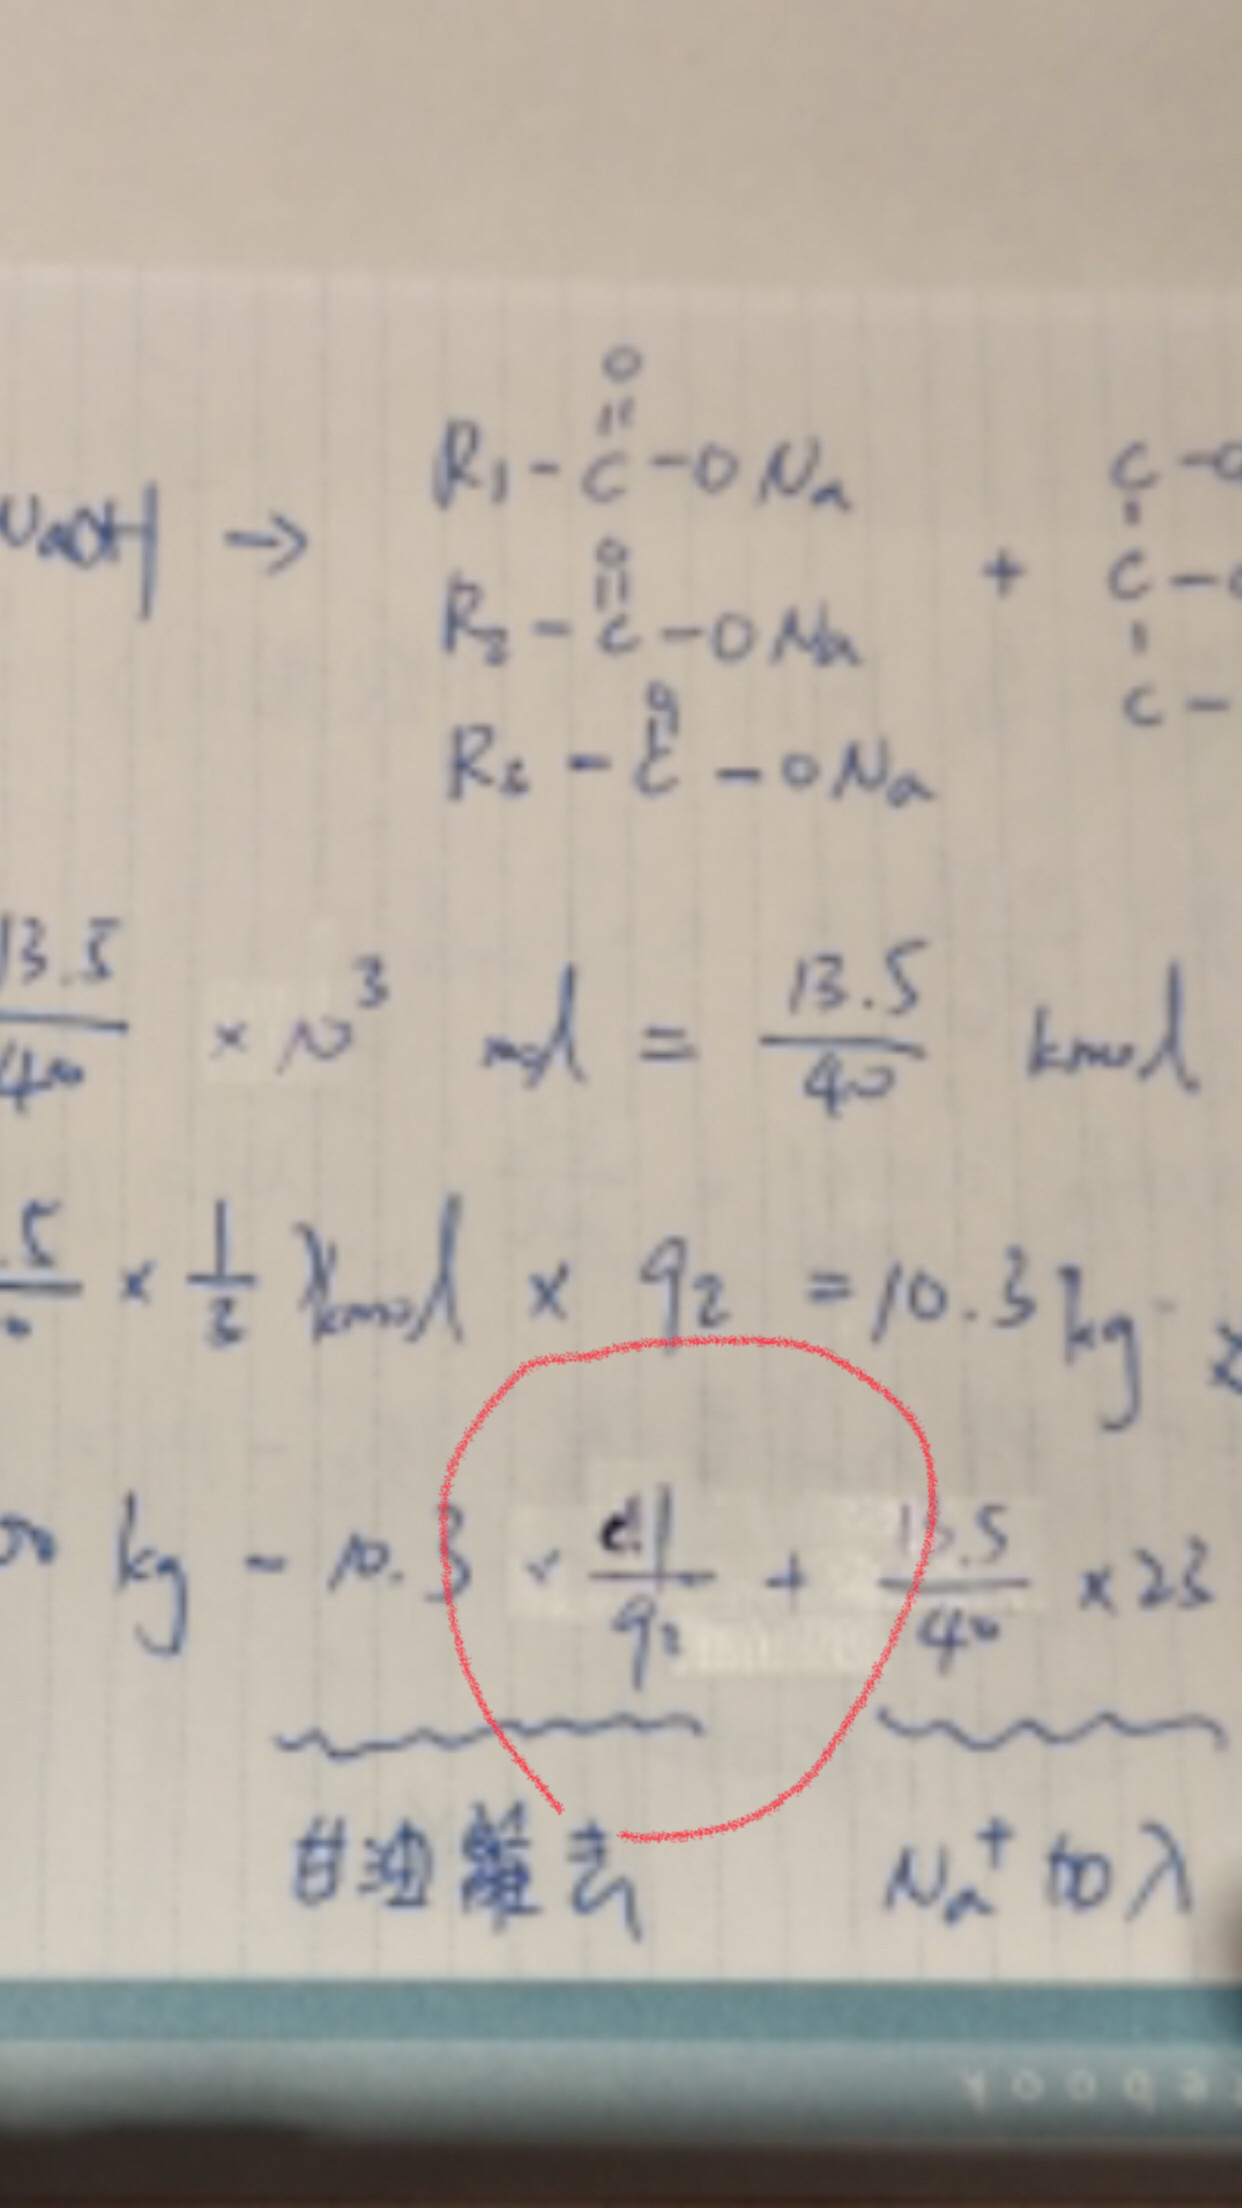 O
||
NaOH → R₁-C-ONa + C-O
O
||
R₂-C-ONa C-O
O
||
R₃-C-ONa C-
13.5/40 × 10³ mol = 13.5/40 kmol
.5/ × 1/3 kmol × 92 = 10.3 kg
kg - 10.3 × /92 + 13.5/40 × 23
甘油離去 Na⁺ 加入
ebook